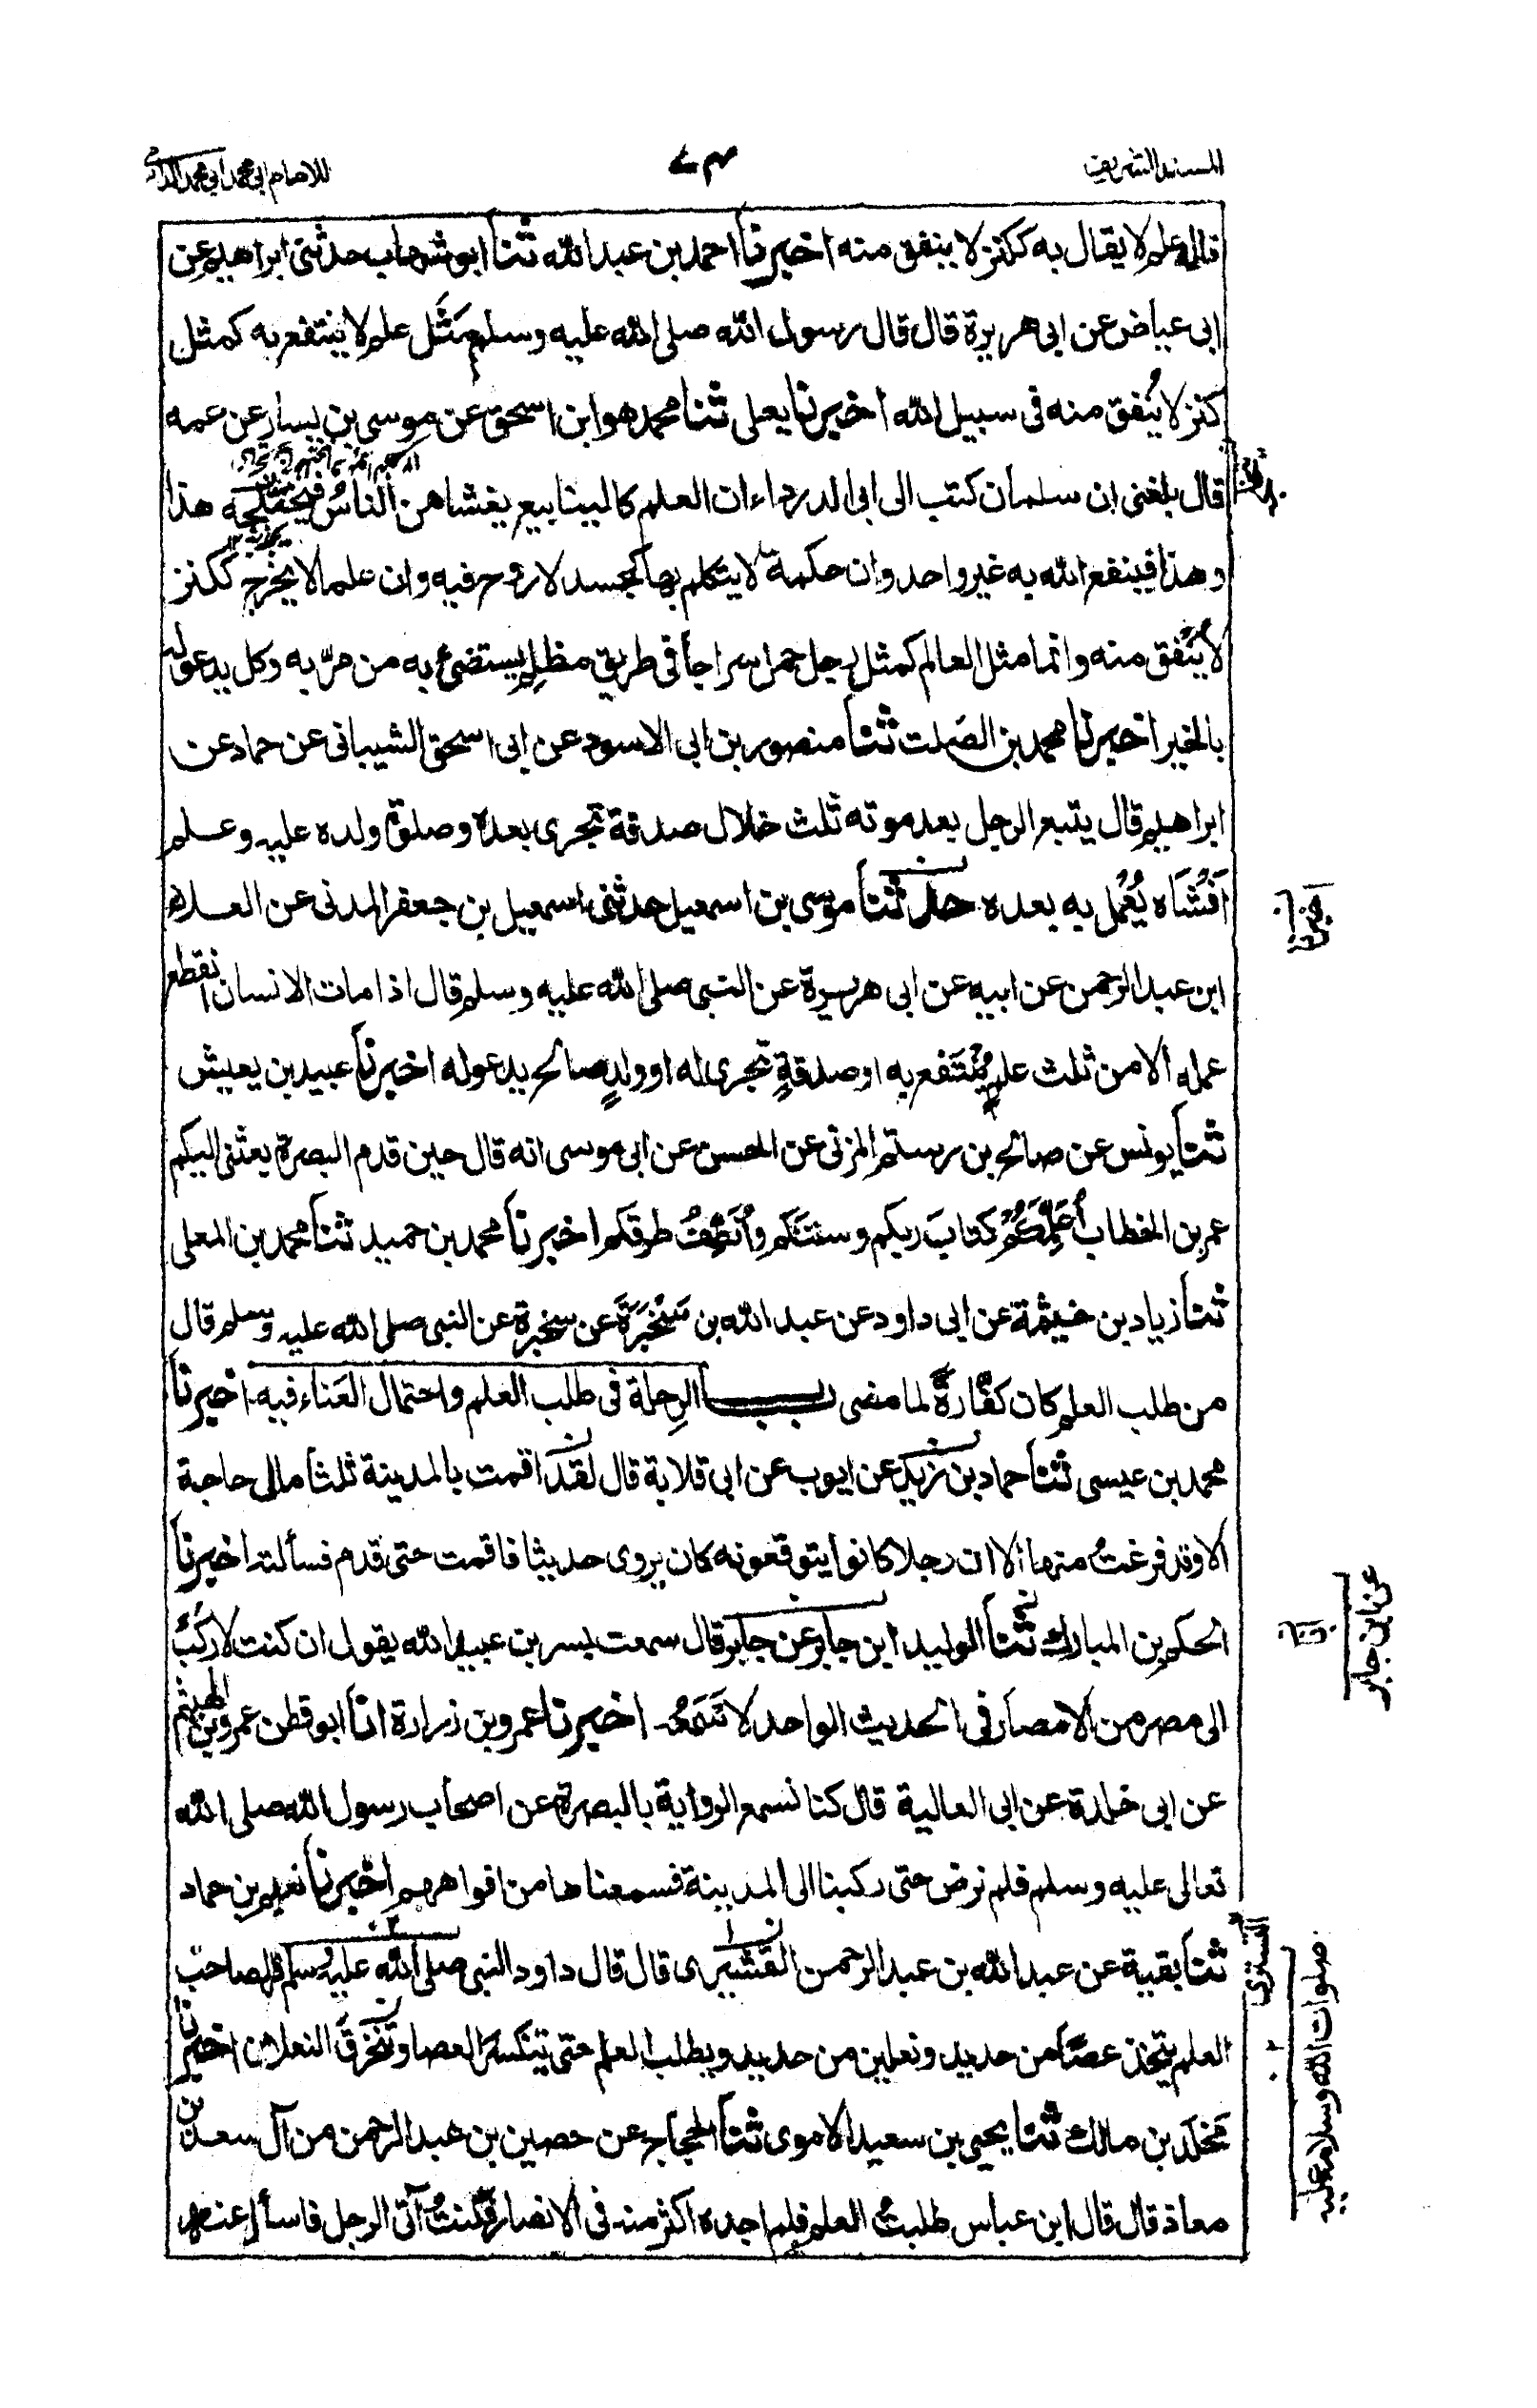 المسند الشريف
٧٤
للامام ابي محمد
قال علم لا يقال به ككنز لا ينفق منه اخبرنا احمد بن عبد الله ثنا ابو شهاب حدثنى ابراهيم عن
ابى عياض عن ابى هريرة قال قال رسول الله صلى الله عليه وسلم مَثَل علم لا ينتفع به كمثل
كنز لا يُنفق منه فى سبيل الله اخبرنا يعلى ثنا محمد هو ابن اسحق عن موسى بن يسار عن عمه
قال بلغنى ان سلمان كتب الى ابى الدرداء ان العلم كالينابيع يغشاهن الناسُ فيختلجه هذا
وهذا فينفع الله به غير واحد وان حكمة لا يتكلم بها كجسد لا روح فيه وان علما لا يخرج ككنز
لا يُنْفق منه وانما مثل العالم كمثل رجل حمل سراجا فى طريق مظلم يستضئ به من مرّ به وكل يدعو له
بالخير اخبرنا محمد بن الصَلت ثنا منصور بن ابى الاسود عن ابى اسحق الشيبانى عن حماد عن
ابراهيم قال يتبع الرجل بعد موته ثلث خلال صدقة تجرى بعده وصلوة ولده عليه وعلم
اَفْشَاه يُعْمل به بعده حدثنا موسى بن اسمعيل حدثنى اسمعيل بن جعفر المدنى عن العلاء
اخبرنا
ابن عبد الرحمن عن ابيه عن ابى هريرة عن النبى صلى الله عليه وسلم قال اذا مات الانسان انقطع
عمله الا من ثلث علم يُنْتَفع به او صدقةٍ تجرى له او ولدٍ صالح يدعو له اخبرنا عبيد بن يعيش
ثنا يونس عن صالح بن رستم المزنى عن الحسن عن ابى موسى انه قال حين قدم البصرة بعثنى اليكم
عمر بن الخطاب اُعَلِّمُكُمْ كتابَ ربكم وسنتكم واُنَظِّفُ طرقكم اخبرنا محمد بن حميد ثنا محمد بن المعلى
ثنا زياد بن خيثمة عن ابى داود عن عبد الله بن سَخْبَرَةَ عن سخبرة عن النبى صلى الله عليه وسلم قال
من طلب العلم كان كفّارةً لما مضى باب الرِحلة فى طلب العلم واحتمال العَناء فيه اخبرنا
محمد بن عيسى ثنا حماد بن زيد عن ايوب عن ابى قلابة قال لقد اقمت بالمدينة ثلثا مالى حاجة
الا وقد فرغتُ منها الا ان رجلا كانوا يتوقعونه كان يروى حديثا فاقمت حتى قدم فسألته اخبرنا
الحكم بن المبارك ثنا الوليد ابن جابر عن جابر قال سمعت بسر بن عبيد الله يقول ان كنت لاركبُ
عن ابن جابر
الى مصر من الامصار فى الحديث الواحد لاسَمَعُه اخبرنا عمرو بن زرارة انا ابو قطن عمرو بن الهيثم
عن ابى خلدة عن ابى العالية قال كنا نسمع الرواية بالبصرة عن اصحاب رسول الله صلى الله
تعالى عليه وسلم فلم نرض حتى ركبنا الى المدينة فسمعناها من افواههم اخبرنا نعيم بن حماد
ثنا بقية عن عبد الله بن عبد الرحمن القشيرى قال قال داود النبى صلى الله عليه وسلم قل لصاحب
التسترى
صلوات الله وسلامه عليه
العلم يتخذ عصًا من حديد ونعلين من حديد ويطلب العلم حتى تنكسر العصا وتنخرق النعلان اخبرنا
مَخْلَد بن مالك ثنا يحيى بن سعيد الاموى ثنا الحجاج عن حصين بن عبد الرحمن من آل سعد بن
معاذ قال قال ابن عباس طلبتُ العلم فلم اجده اكثر منه فى الانصار فكنتُ آتى الرجل فاسأل عنه